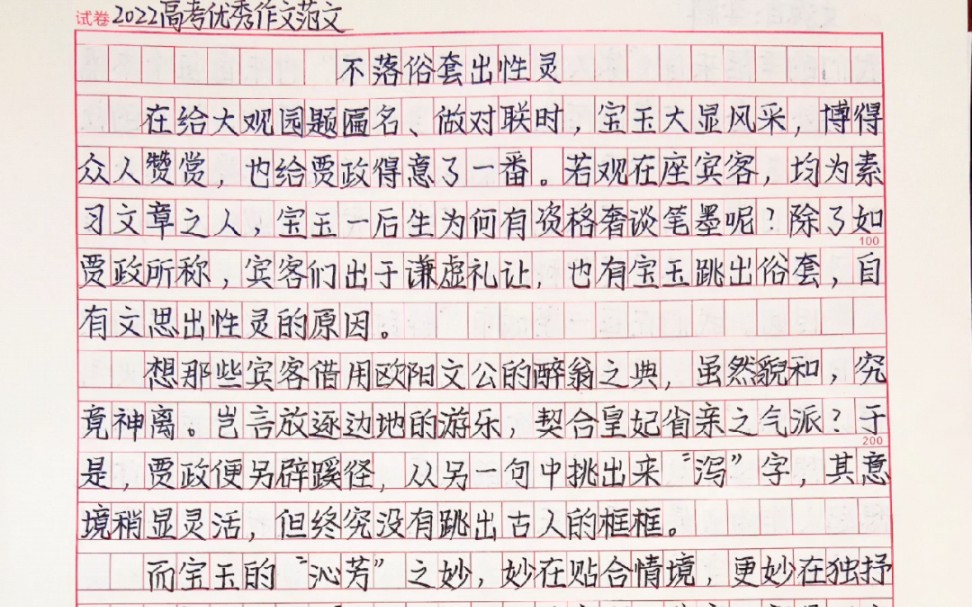 试卷 2022高考优秀作文范文
不落俗套出性灵
在给大观园题匾名、做对联时，宝玉大显风采，博得
众人赞赏，也给贾政得意了一番。若观在座宾客，均为素
习文章之人，宝玉一后生为何有资格奢谈笔墨呢？除了如
100
贾政所称，宾客们出于谦虚礼让，也有宝玉跳出俗套，自
有文思出性灵的原因。
想那些宾客借用欧阳文公的醉翁之典，虽然貌和，究
竟神离。岂言放逐边地的游乐，契合皇妃省亲之气派？于
200
是，贾政便另辟蹊径，从另一句中挑出来“泻”字，其意
境稍显灵活，但终究没有跳出古人的框框。
而宝玉的“沁芳”之妙，妙在贴合情境，更妙在独抒